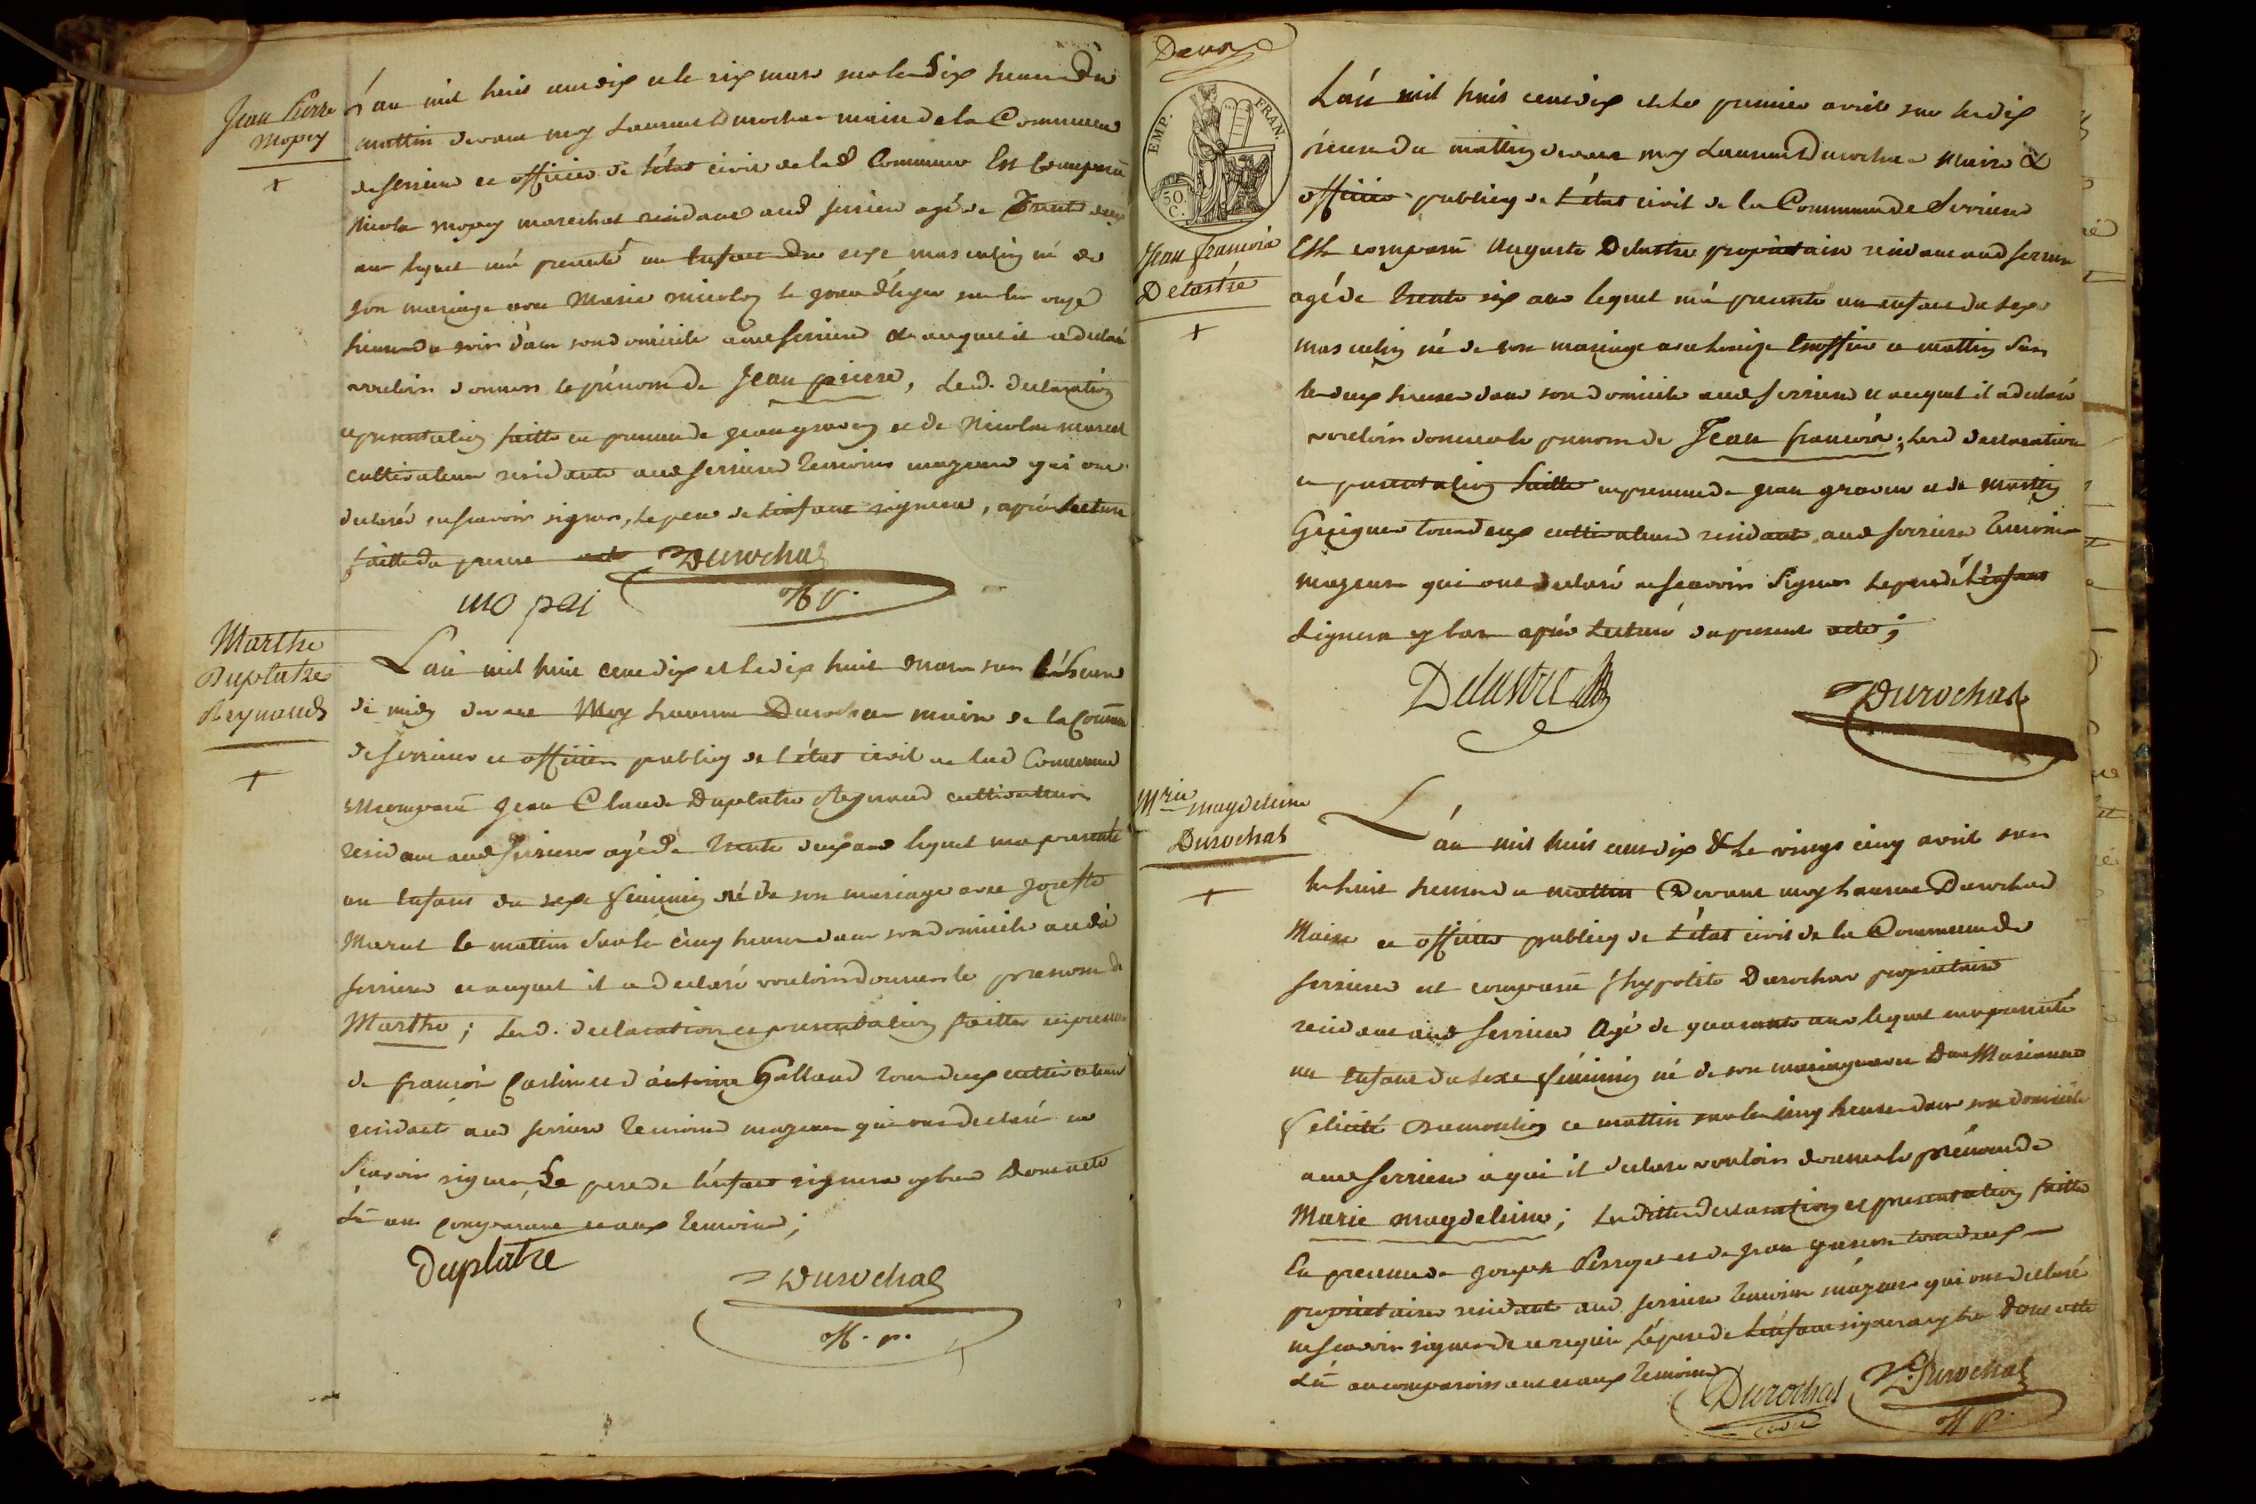 Jean Pierre
Mopey
L'an mil huit cent dix et le six mars sur les dix heures du
mattin devant moy Laurent Durochat maire de la Commune
de Serriere et officier de l'état civil de lad Commune Est Comparu
Nicolas Mopey marechal residant aud Serriere agé de Trente deux
ans lequel m'a presenté un Enfant du sexe masculin né de
son mariage avec Marie le jour d'hyer sur les onze
heures du soir dans son domicile aud Serriere et auquel il a declaré
vouloir donner le prénom de Jean pierre, Lesd. declaration
et presentation faitte en presence de jean et de Nicolas
cultivateurs residants aud Serriere temoins majeurs qui ont
declaré ne scavoir signer, le pere de l'enfant signera, après lecture
faitte du present acte Durochat
mo pai
Marthe
Duplatre
Reynaud
L'an mil huit cent dix et le dix huit mars sur l'heure
de midy devant Moy Laurent Durochat maire de la Comune
de Serriere et officier publicq de l'état civil de lad Commune
Est comparu Jean Claude Duplatre Reynaud cultivateur
residant aud Serriere agé de trente deux ans lequel m'a presenté
un Enfant du sexe feminin né de son mariage avec
le mattin sur les cinq heures dans son domicile aud
Serriere et auquel il a declaré vouloir donner le prenom de
Marthe; Lesd. declaration et presentation faitte en presence
de françois et d'antoine Galland tous deux cultivateurs
residants aud Serriere temoins majeurs qui ont declaré ne
Scavoir signer Le pere de l'enfant signera cy bas Donné acte
Lû au comparant et aux temoins;
Duplatre
Durochat
Deux
EMP. FRAN.
50.
C.
Jean françois
Delastre
L'an mil huit cent dix et le premier avril sur les dix
heures du mattin devant moy Laurent Durochat Maire &
officier publicq de l'état civil de la Commune de Serriere
Est comparu Auguste Delastre propriétaire residant aud Serriere
agé de trente six ans lequel m'a presenté un enfant du sexe
masculin né de son mariage avec ce mattin sur
les deux heures dans son domicile aud Serriere et auquel il a declaré
vouloir donner le prenom de Jean françois; Lesd declaration
et presentation faitte en presence de jean et de
tous deux cultivateurs residants aud Serriere temoins
majeurs qui ont declaré ne scavoir Signer Le pere de l'enfant
Signera cy bas après Lecture du present acte;
Delastre
Durochat
Mrie magdeleine
Durochat
L'an mil huit cent dix & le vingt cinq avril sur
les huit heures du mattin Devant moy Laurent Durochat
Maire et officier publicq de l'état civil de la Commune de
Serriere est comparu hypolite Durochat propriétaire
residant aud Serriere Agé de quarante ans lequel m'a presenté
un Enfant du sexe féminin né de son mariage avec Dme Marianne
Félicité Dumoulin ce mattin sur les cinq heures dans son domicile
aud Serriere à qui il declare vouloir donner le prénom de
Marie magdeleine; Lesdittes declaration et presentation faitte
En presence de joseph et de jean tous deux
propriétaires residants aud Serriere temoins majeurs qui ont declaré
ne scavoir signer de ce requis Le pere de l'enfant signera cy bas Donné acte
Lû au comparoissant et aux temoins
Durochat Durochat